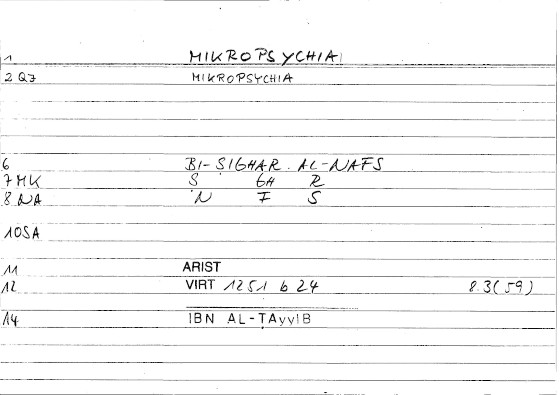 1 MIKROPSYCHIA
2 Q7 MIKROPSYCHIA
6 BI-SIGHAR. AL-NAFS
7 MK S GH R
8 NA N F S
10 SA
11 ARIST
12 VIRT 1251 b 24 8.3(59)
14 IBN AL-ṬAyyIB